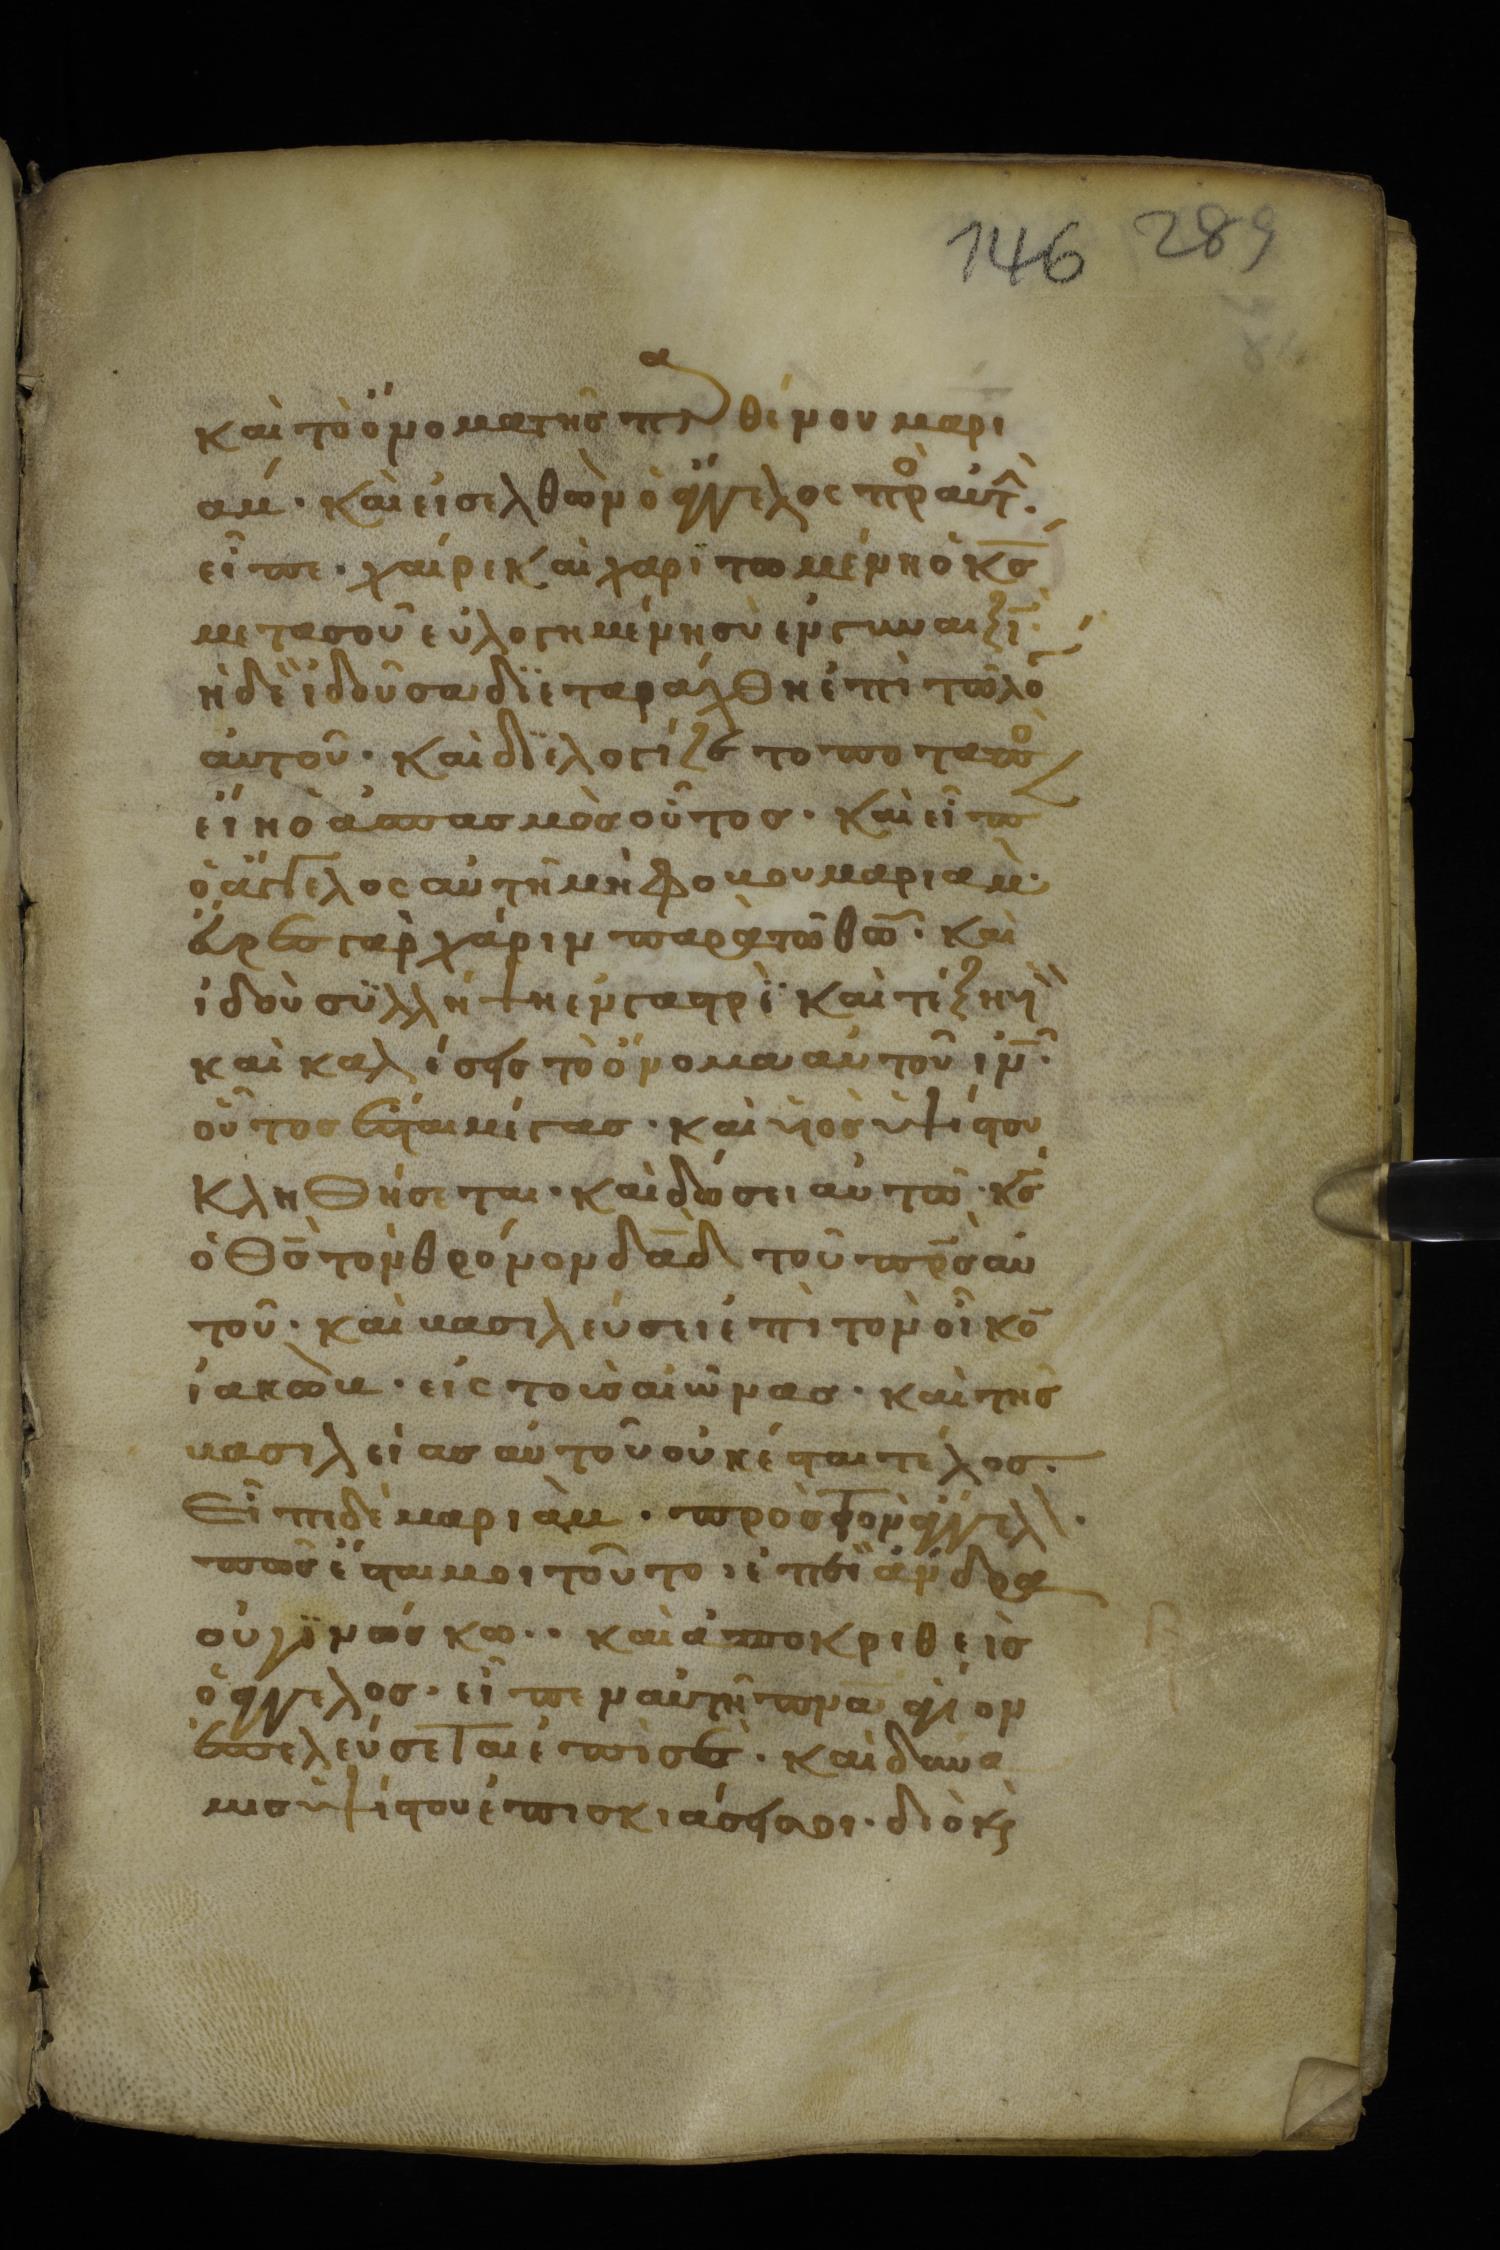 146 289
καὶ τὸ ὄνομα τῆς παρθένου μαρι
άμ · καὶ εἰσελθὼν ὁ ἄγγελος πρὸ αὐτ̑ ·
εἶπε · χαίρε καὶ χαριτωμένη ὁ κς
μετα σοῦ εὐλογημένη σὺ ἐν γυναιξί ·
ἡ δὲ ἰδοῦσα διεταράχθη ἐπὶ τῶ λο
αὐτοῦ · καὶ διελογίζετο ποταπὸς
εἴη ὁ ἀσπασμὸς οὗτος · καὶ εἶπε
ὁ ἄγγελος αὐτῆ μὴ φοβου μαριὰμ ·
εὗρες γὰρ χάριν παρὰ τῶ θῶ · καὶ
ἰδοὺ συλλήψη ἐν γαστρὶ καὶ τέξη ὑν
καὶ καλέσεις τὸ ὄνομα αὐτοῦ ιν ·
οὗτος ἔσται μέγας · καὶ υἱὸς ὑψίστου
κληθήσεται · καὶ δώσει αὐτῶ · κς
ὁ θς τὸν θρόνον δαδ τοῦ πρς αὐ
τοῦ · καὶ βασιλεύσει ἐπὶ τὸν οἶκο
ἰακὼβ · εἰς τοὺς αἰῶνας · καὶ τῆς
βασιλείας αὐτοῦ οὐκ έσται τέλος ·
Εἶπε δὲ μαριὰμ · πρὸς τὸν ἄγγελ ·
πῶς ἔσται μοι τοῦτο · ἐπεὶ ἄνδρα
οὐ γινώσκω · · καὶ ἀποκριθεὶς
ὁ ἄγγελος · εἶπεν αὐτῆ πνα ἅγιον
ἐπελεύσεται ἐπὶ σε · καὶ δυνα
μις ὑψίστου ἐπισκιάσει σοι · διὸ κὶ